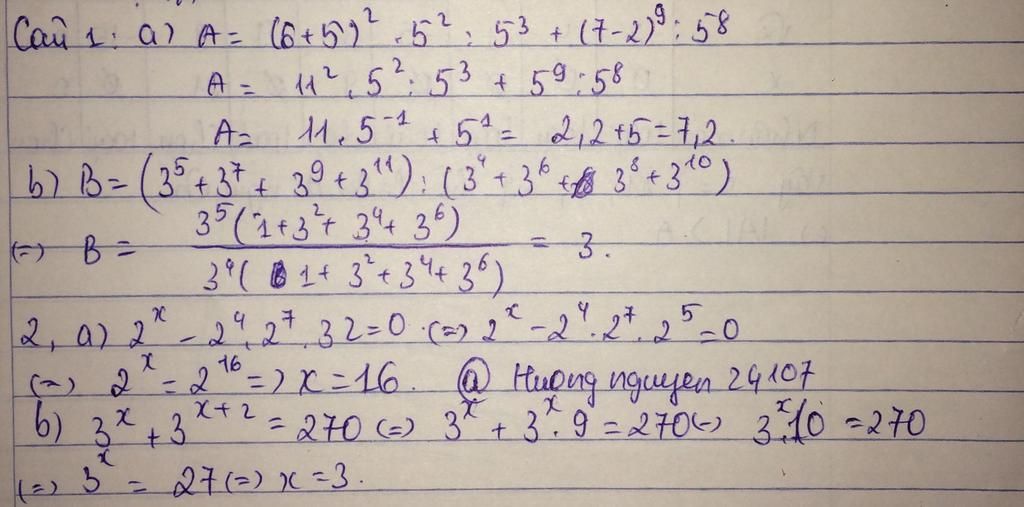 Câu 1: a) A = (6+5)² . 5² : 5³ + (7-2)⁹ : 5⁸
A = 11² . 5² : 5³ + 5⁹ : 5⁸
A = 11 . 5⁻¹ + 5¹ = 2,2 + 5 = 7,2.
b) B = (3⁵ + 3⁷ + 3⁹ + 3¹¹) : (3⁴ + 3⁶ + 3⁸ + 3¹⁰)
(=) B = 3⁵(1 + 3² + 3⁴ + 3⁶) / 3⁴(1 + 3² + 3⁴ + 3⁶) = 3.
2, a) 2ˣ - 2⁴ . 2⁷ . 32 = 0 (=) 2ˣ - 2⁴ . 2⁷ . 2⁵ = 0
(=) 2ˣ = 2¹⁶ =) x = 16. @ Huongnguyen 24107
b) 3ˣ + 3ˣ⁺² = 270 (=) 3ˣ + 3ˣ . 9 = 270 (=) 3ˣ.10 = 270
(=) 3ˣ = 27 (=) x = 3.